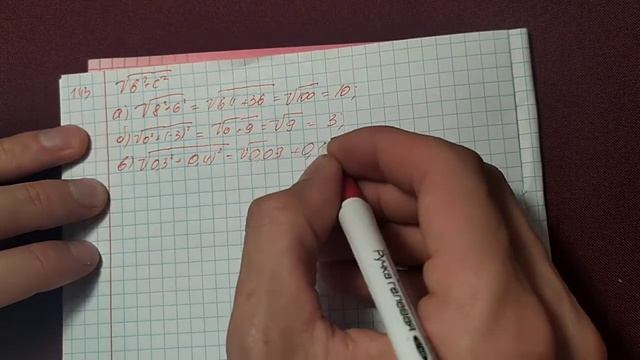 143
√b²+c²
а) √8²+6² = √64+36 = √100 = 10;
б) √0²+(-3)² = √0+9 = √9 = 3;
в) √0,3²+0,4)² = √0,09+0,
Ручка гелевая